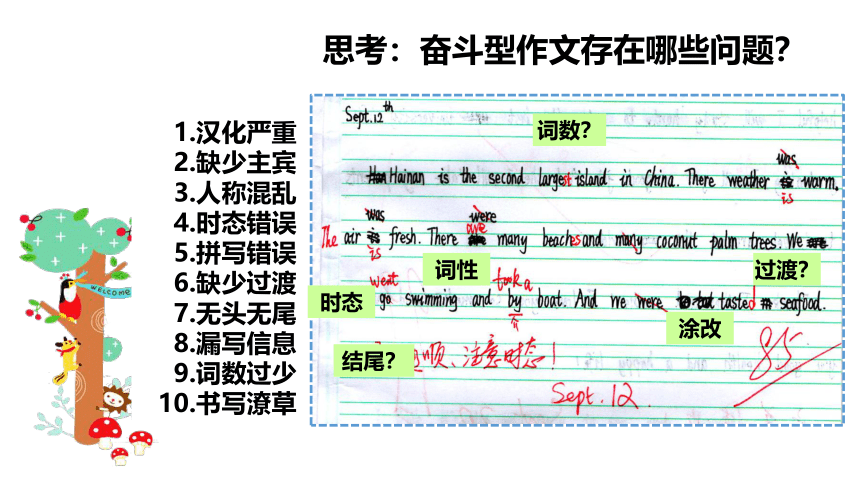 思考：奋斗型作文存在哪些问题？
1.汉化严重
2.缺少主宾
3.人称混乱
4.时态错误
5.拼写错误
6.缺少过渡
7.无头无尾
8.漏写信息
9.词数过少
10.书写潦草
WELCOME
Sept.12th
词数？
was
Hainan is the second largest island in China. There weather is warm.
is
was were
are
The air is fresh. There many beaches and many coconut palm trees. We
is
词性
过渡？
went took a
时态
go swimming and by boat. And we were tasted seafood.
涂改
结尾？
顺、注意时态！
85
Sept.12.